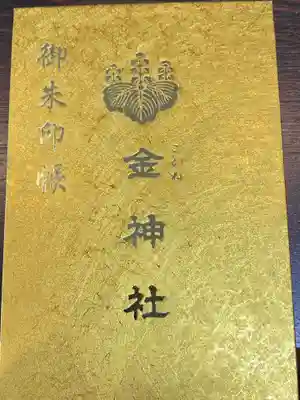 御朱印帳
こがね
金神社